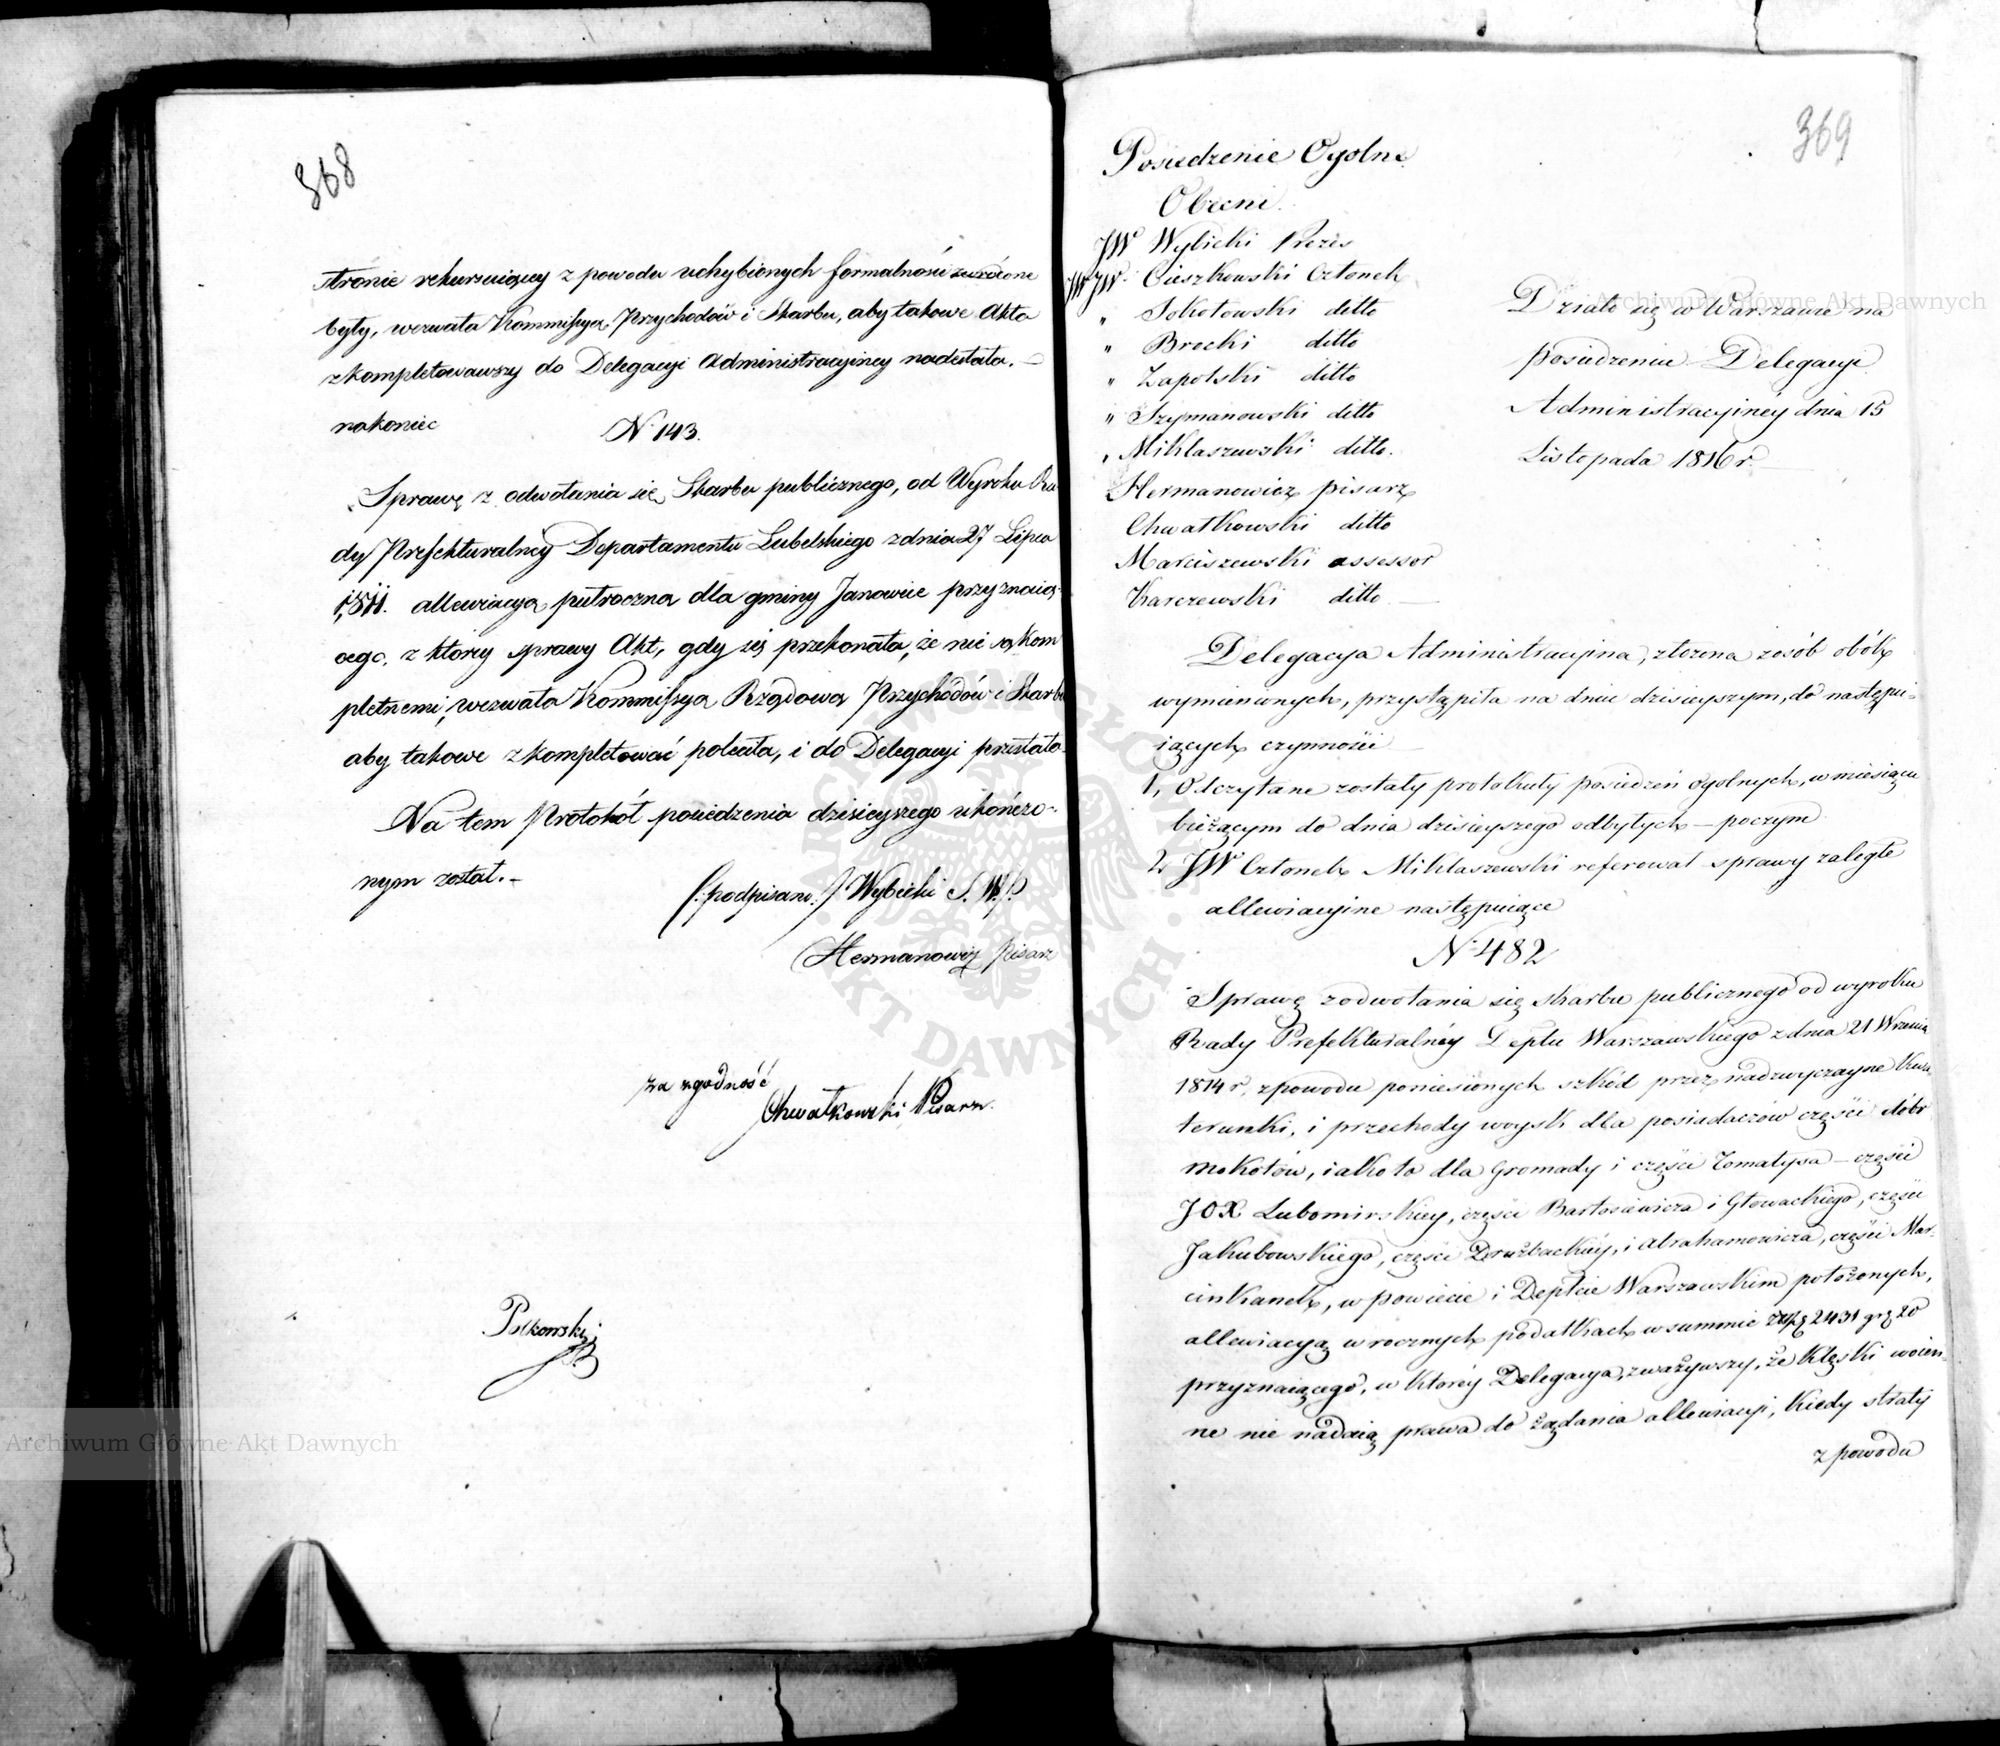 368
stronie rekursuiącey z powodu uchybionych formalności zwrócone
były, wezwała Kommissya Przychodów i Skarbu, aby takowe Akta
zkompletowawszy do Delegacyi Administracyiney nadesłała. —
nakoniec
N. 143.
Sprawę z odwołania się Skarbu publicznego, od Wyroku Ra-
dy Prefekturalney Departamentu Lubelskiego z dnia 27 Lipca
1811. allewiacyą pułroczną dla gminy Janowice przyznaią-
cego, z któréy sprawy Akt, gdy się przekonała, że nie są kom
pletnemi, wezwała Kommissya Rządową Przychodów i Skarbu
aby takowe zkompletować poleciła, i do Delegacyi przesłała.
Na tem Protokół posiedzenia dzisieyszego ukończo-
nym został. —
(: podpisano :) Wybicki S. W. P.
Hermanowicz Pisarz
Za zgodność
Chwatkowski Pisarz.
369
Posiedzenie Ogolne
Obecni.
JW Wybicki Prezes
JWJW. Cieszkowski Członek
" Sokołowski ditto
" Brocki ditto
" Zapolski ditto
" Szymanowski ditto
" Miklaszewski ditto.
Hermanowicz pisarz
Chwatkowski ditto
Marciszewski assessor
Karczewski ditto —
Działo się w Warszawie na
posiedzeniu Delegacyi
Administracyinéy dnia 15
Listopada 1816 r.
Delegacya Administracyina, złożona z osób obók
wymienionych, przystąpiła na dniu dzisieyszym, do następu-
iących czynności —
1, Odczytane zostały protokuły posiedzeń ogolnych, w miesiącu
bieżącym do dnia dzisieyszego odbytych — poczym
2, JW Członek Miklaszewski referował sprawy zaległe
allewiacyine następuiące
N. 482
Sprawę z odwołania się skarbu publicznego od wyroku
Rady Prefekturalnéy Deptu Warszawskiego z dnia 21 Wrzenia
1814 r, z powodu poniesionych szkód przez nadzwyczayne Kwa-
terunki, i przechody woysk dla posiadaczów części dóbr
Mokotów, iako to dla Gromady i części Tomatysa — części
JOX Lubomirskiey, części Bartosiewicza i Głowackiego, części
Jakubowskiego, części Drużbackiéy, i Abrahamowicza, części Mar-
cinkanek, w powiecie i Deptcie Warszawskim położonych,
allewiacyą w rocznych podatkach w summie złp 2431 gr 20
przyznaiącego, w któréy Delegacya, zważywszy, że Klęski woien-
ne nie nadaią prawa do żądania allewiacyi, kiedy straty
z powodu
Archiwum Główne Akt Dawnych
Archiwum Główne Akt Dawnych
ARCHIWUM GŁÓWNE AKT DAWNYCH